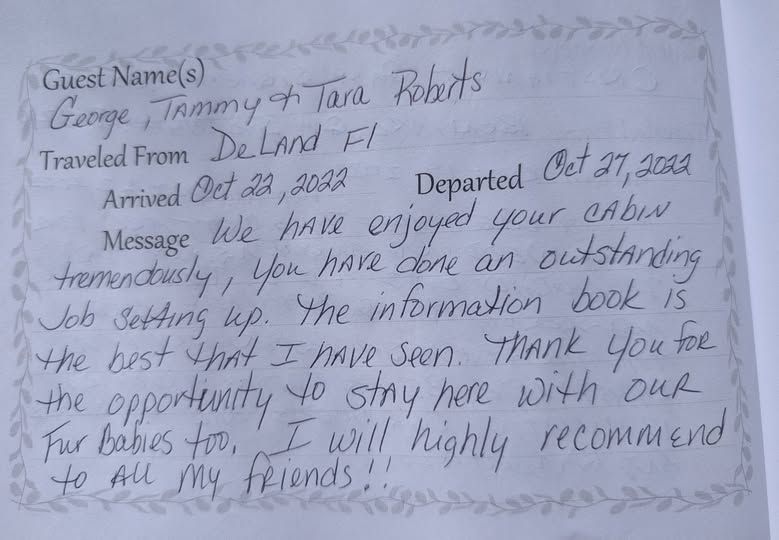 Guest Name(s)
George, Tammy + Tara Roberts
Traveled From DeLand Fl
Arrived Oct 22, 2022 Departed Oct 27, 2022
Message We have enjoyed your cabin
tremendously, you have done an outstanding
Job setting up. The information book is
the best that I have seen. Thank you for
the opportunity to stay here with our
Fur Babies too. I will highly recommend
to all my friends!!